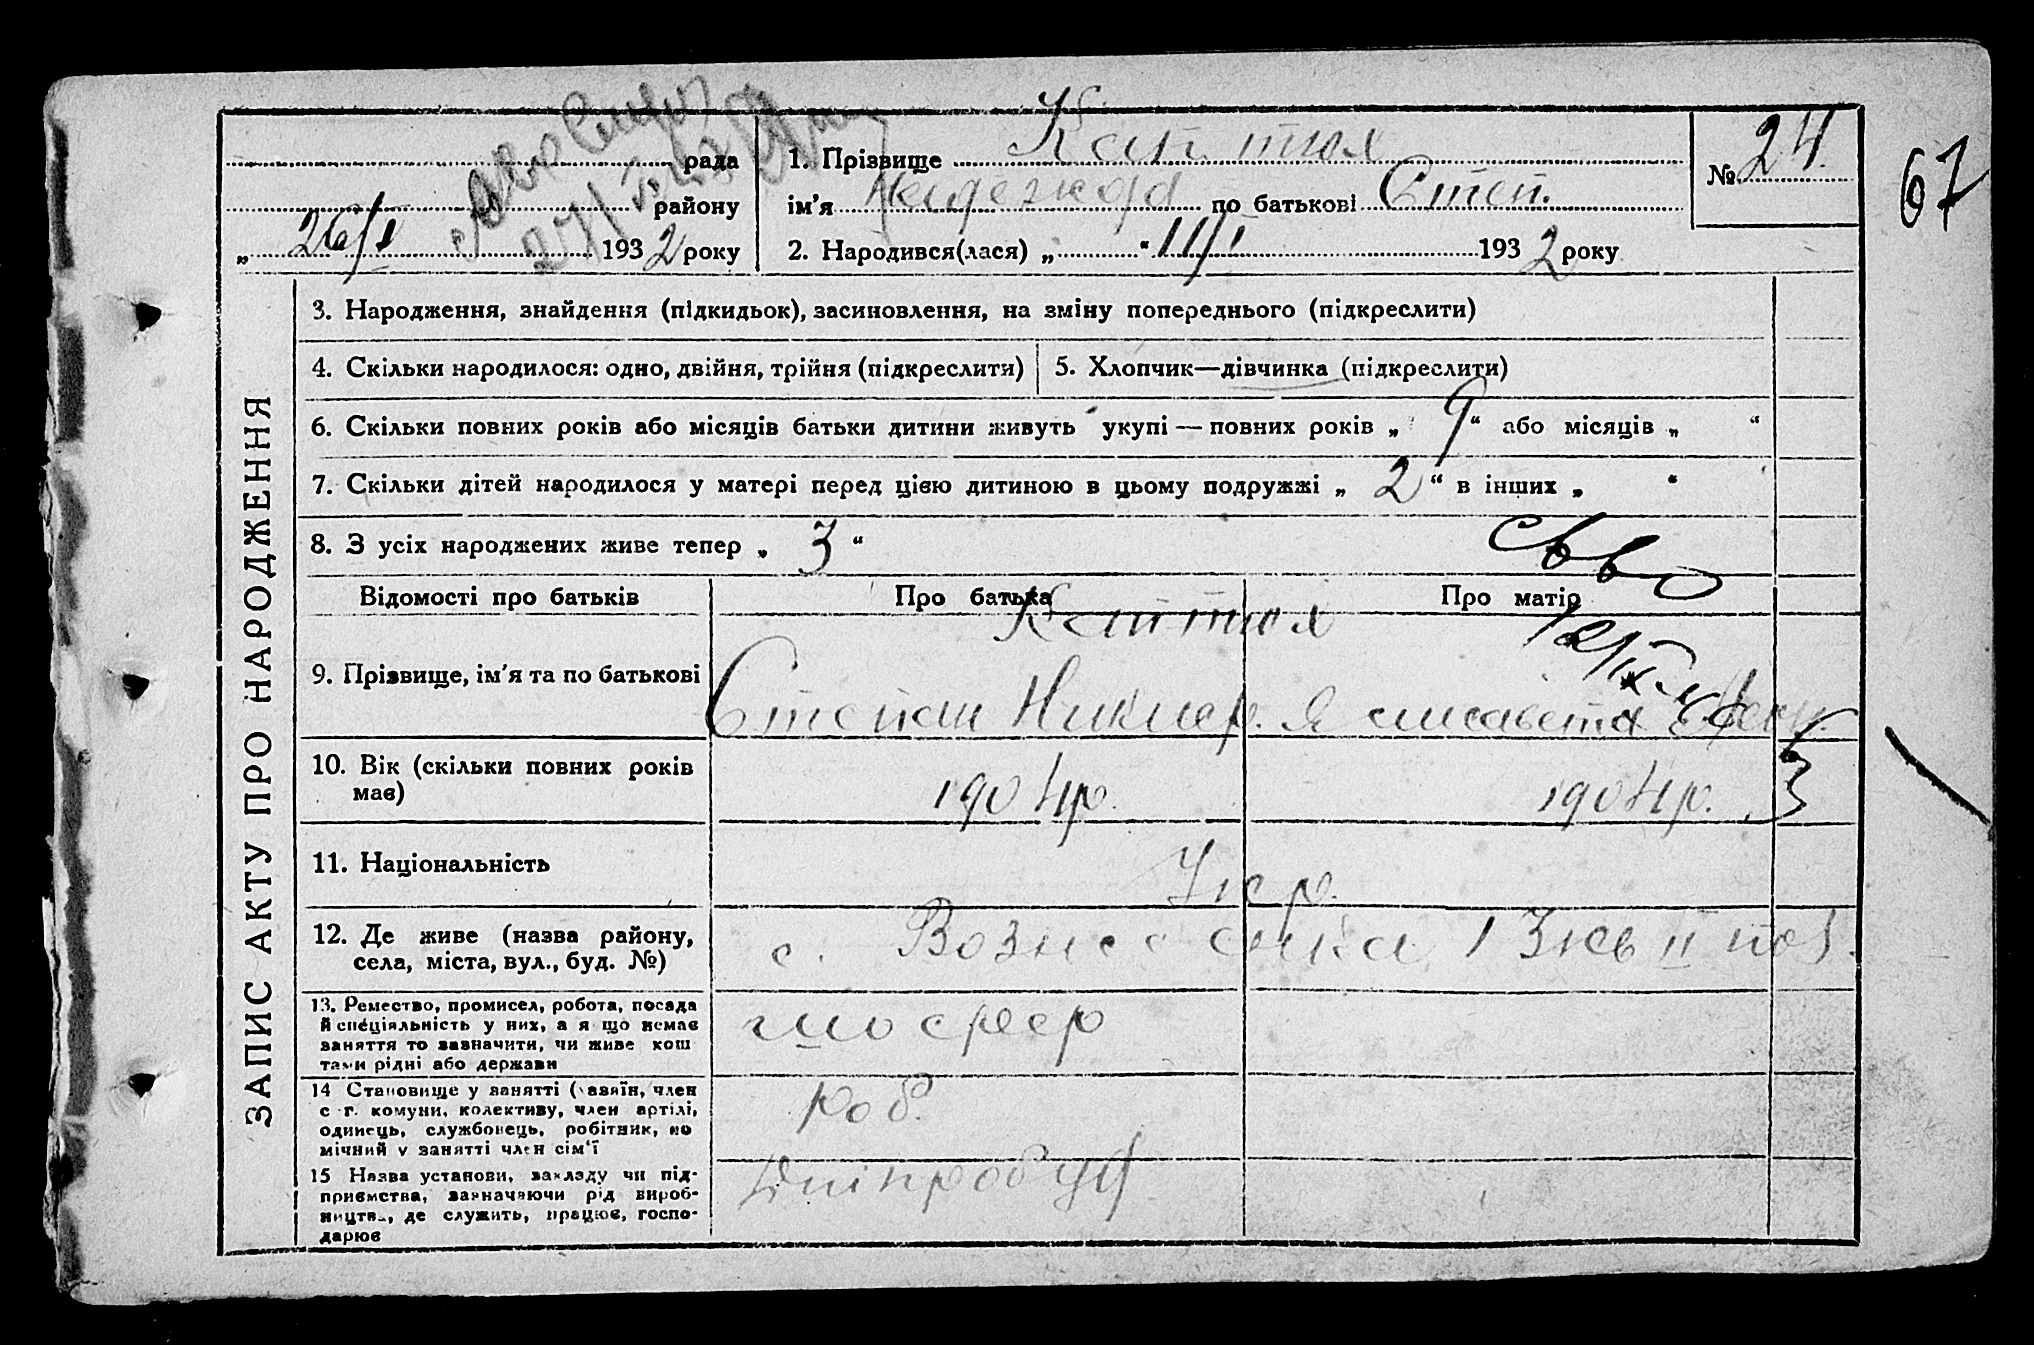 рада
району
„ 26/I 1932 року
1. Прізвище
ім'я по батькові Степ.
2. Народився(лася) „ “ 11/I 1932 року
№ 24
67
ЗАПИС АКТУ ПРО НАРОДЖЕННЯ
3. Народження, знайдення (підкидьок), засиновлення, на зміну попереднього (підкреслити)
4. Скільки народилося: одно, двійня, трійня (підкреслити)
5. Хлопчик—дівчинка (підкреслити)
6. Скільки повних років або місяців батьки дитини живуть укупі — повних років „ 9 “ або місяців „ “
7. Скільки дітей народилося у матері перед цією дитиною в цьому подружжі „ 2 “ в інших „ “
8. З усіх народжених живе тепер „ 3 “
Відомості про батьків
Про батька
Про матір
9. Прізвище, ім'я та по батькові
Степан
10. Вік (скільки повних років
має)
1904 р.
1904 р.
11. Національність
Укр.
12. Де живе (назва району,
села, міста, вул., буд. №)
с. Вознесенка
13. Ремество, промисел, робота, посада
й спеціяльність у них, а я що немає
заняття то зазначити, чи живе кош
тами рідні або держави
шофер
14 Становище у занятті (хазяїн, член
с-г. комуни, колективу, член артілі,
одинець, службовець, робітник, по
мічний у занятті член сім'ї
роб.
15 Назва установи, закладу чи під-
приємства, зазначаючи рід вироб-
ництва, де служить, працює, госпо-
дарює
Дніпробуд